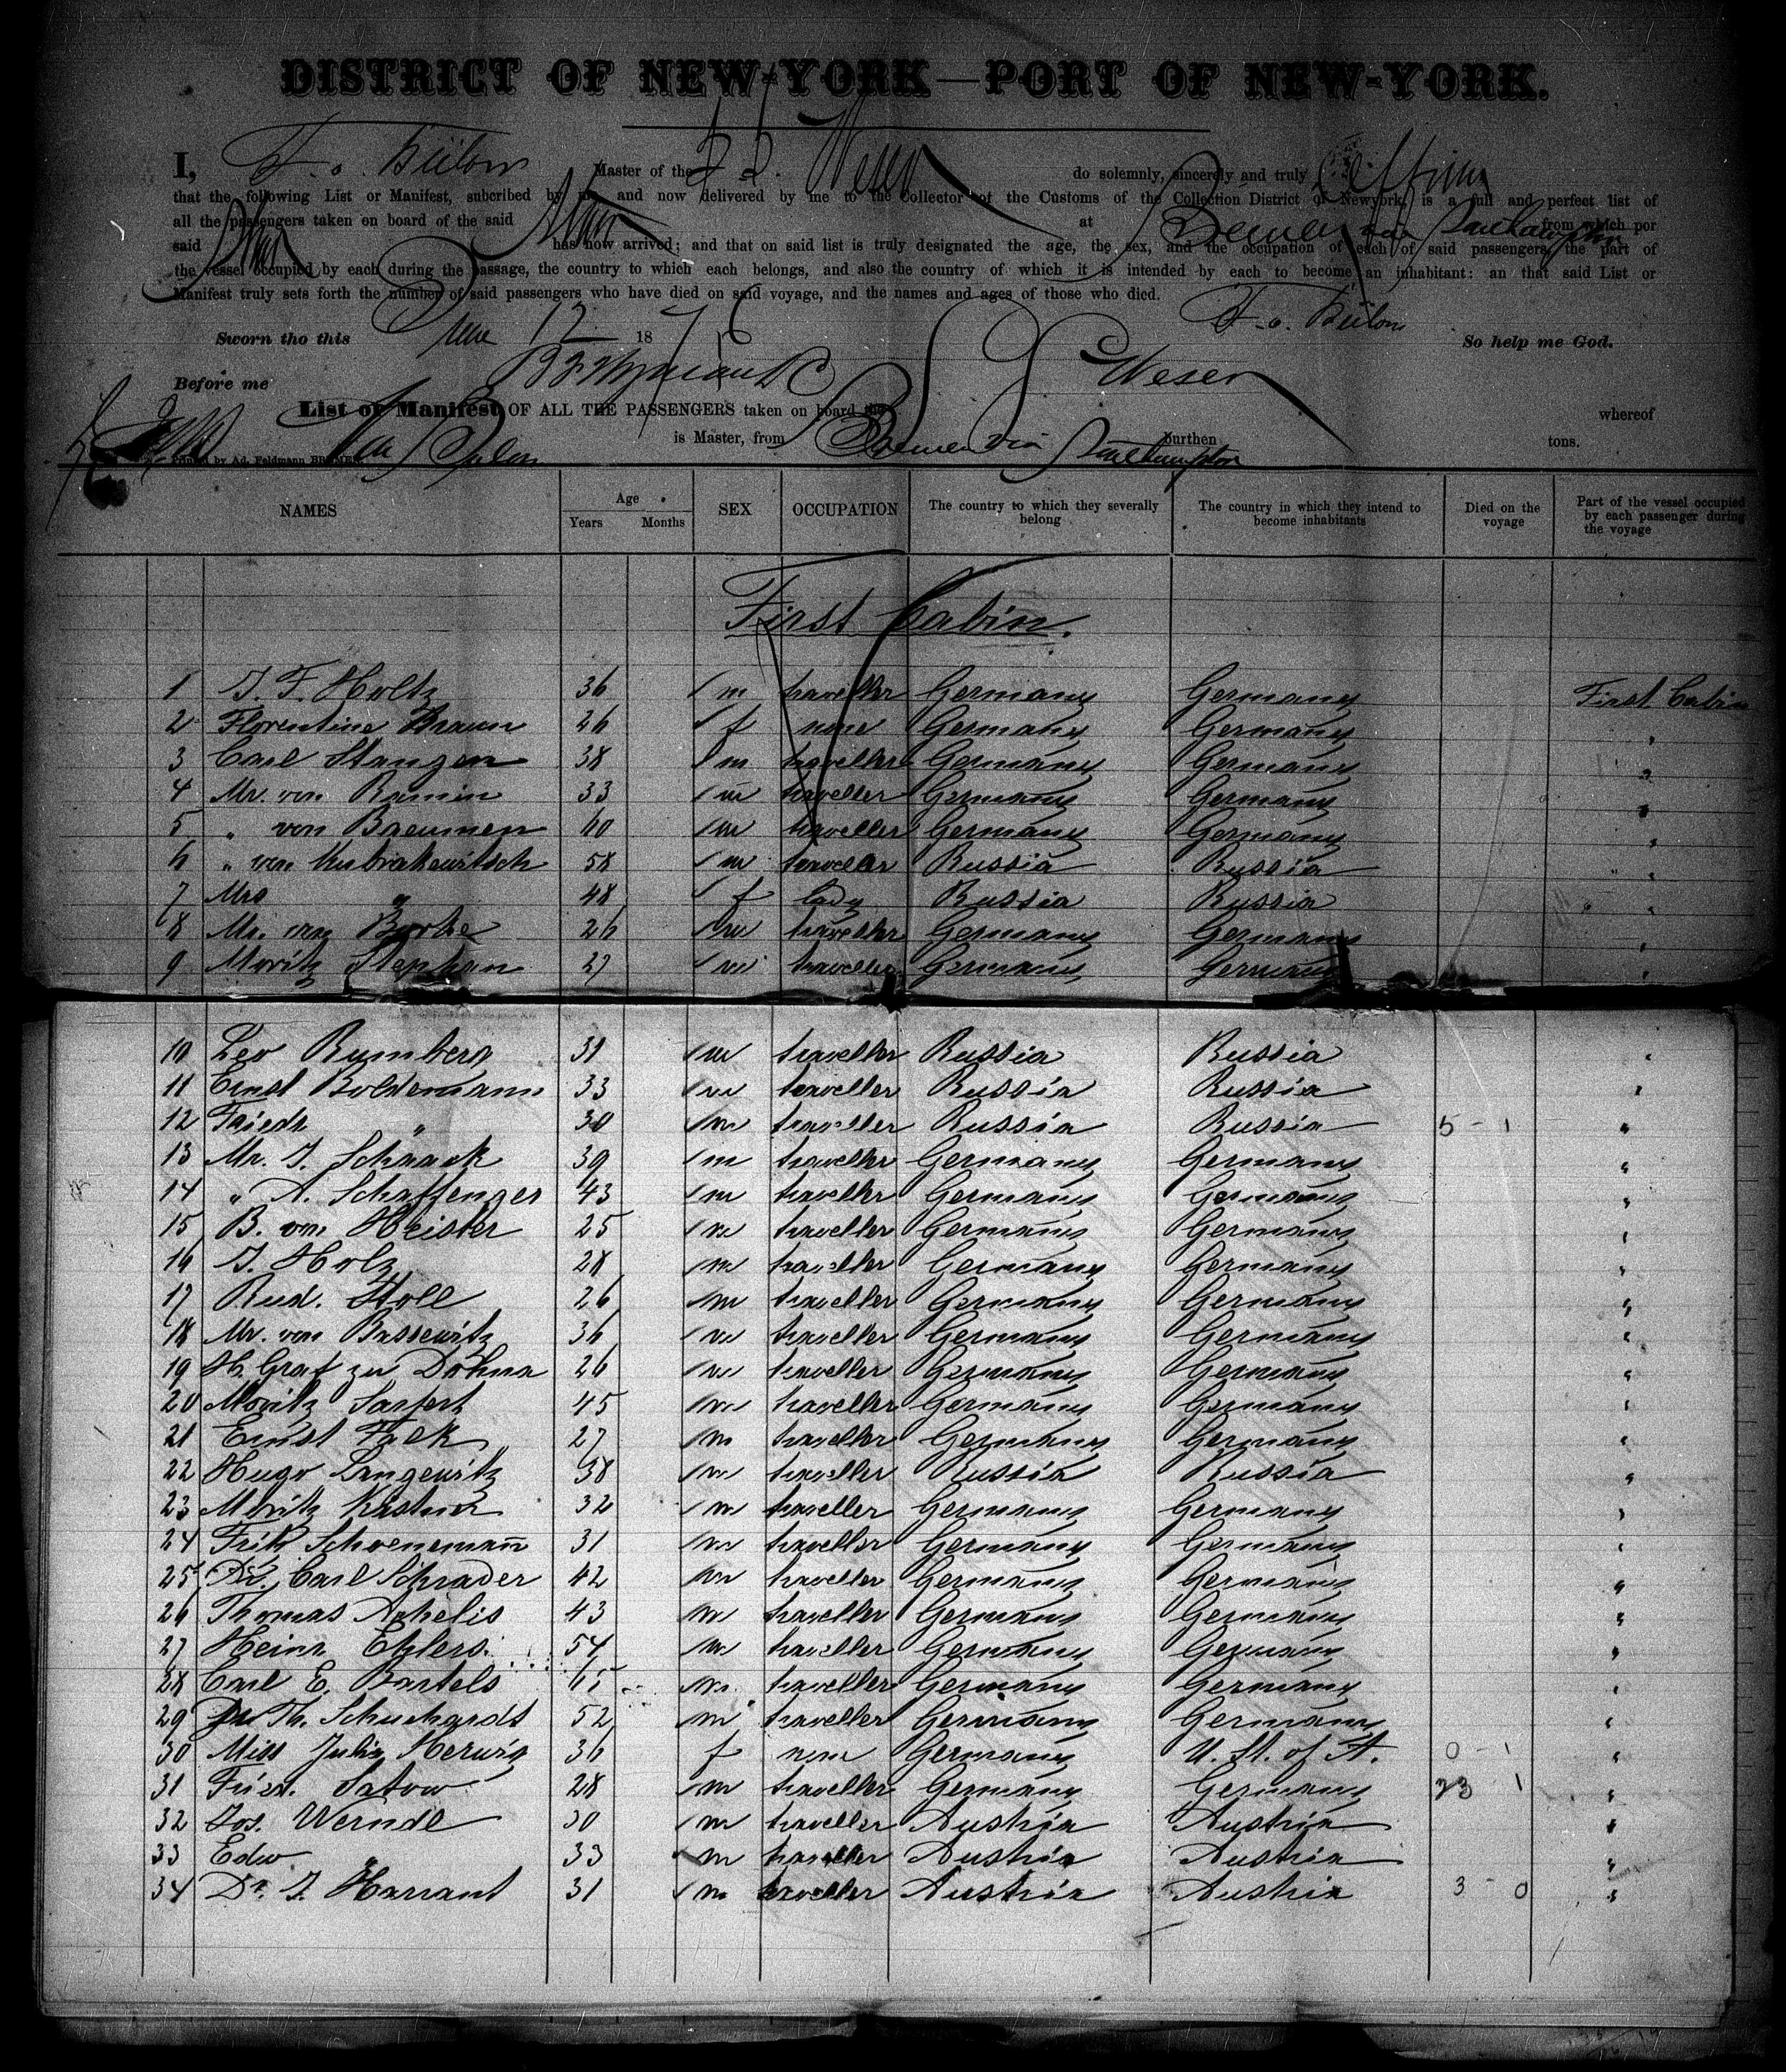 DISTRICT OF NEW-YORK—PORT OF NEW-YORK.
I, F. v. Bülow Master of the S. S. Weser do solemnly, sincerely and truly affirm
that the following List or Manifest, subcribed by me and now delivered by me to the Collector of the Customs of the Collection District of Newyork, is a full and perfect list of
all the passengers taken on board of the said Str at Bremen via Southampton from which por
said has now arrived; and that on said list is truly designated the age, the sex, and the occupation of each of said passengers, the part of
the vessel occupied by each during the passage, the country to which each belongs, and also the country of which it is intended by each to become an inhabitant: an that said List or
Manifest truly sets forth the number of said passengers who have died on said voyage, and the names and ages of those who died.
F. v. Bülow
Sworn tho this June 12 1876 So help me God.
Before me Weser
List of Manifest OF ALL THE PASSENGERS taken on board the whereof
is Master, from Bremen via Southampton burthen tons.
Printed by Ad. Feldmann BREMEN.
NAMES Age Years Months SEX OCCUPATION The country to which they severally belong The country in which they intend to become inhabitants Died on the voyage Part of the vessel occupied by each passenger during the voyage
First Cabin.
1 J. F. Holtz 36 m traveller Germany Germany First Cabin
2 Florentine Braun 26 f none Germany Germany "
3 Carl Stangen 38 m traveller Germany Germany "
4 Mr. von Ramin 33 m traveller Germany Germany "
5 " von Breumen 40 m traveller Germany Germany "
6 " von 58 m traveller Russia Russia "
7 Mrs " 48 f lady Russia Russia "
8 Mr. von Borke 26 m traveller Germany Germany "
9 Moritz Stephan 27 m traveller Germany Germany "
10 Leo Rumberg 31 m traveller Russia Russia "
11 Ernst Boldemann 33 m traveller Russia Russia "
12 Friedr " 30 m traveller Russia Russia 5 - 1 "
13 Mr. J. Schaack 39 m traveller Germany Germany "
14 " A. Schaffenger 43 m traveller Germany Germany "
15 B. von Heister 25 m traveller Germany Germany "
16 J. Holz 28 m traveller Germany Germany "
17 Rud. Stoll 26 m traveller Germany Germany "
18 Mr. von Bassewitz 36 m traveller Germany Germany "
19 H. Graf zu Dohna 26 m traveller Germany Germany "
20 Moritz Sarfert 45 m traveller Germany Germany "
21 Ernst Falk 27 m traveller Germany Germany "
22 Hugo Langewitz 38 m traveller Russia Russia "
23 Moritz Kastner 32 m traveller Germany Germany "
24 Frik Schoenemañ 31 m traveller Germany Germany "
25 Dr. Carl Schrader 42 m traveller Germany Germany "
26 Thomas Achelis 43 m traveller Germany Germany "
27 Heinr Ehlers 54 m traveller Germany Germany "
28 Carl E. Bartels 65 m traveller Germany Germany "
29 Dr Th. Schuchardt 52 m traveller Germany Germany "
30 Miss Julia Herwig 36 f none Germany U. St. of A. 0 - 1 "
31 Fried. Satow 28 m traveller Germany Germany 23 1 "
32 Jos. Werndl 30 m traveller Austria Austria "
33 Edw " 33 m traveller Austria Austria "
34 Dr. J. Harrant 31 m traveller Austria Austria 3 - 0 "